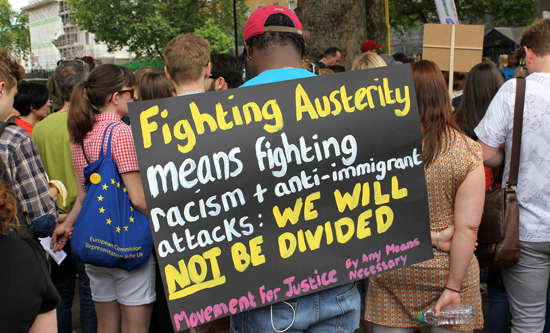 Fighting Austerity
means fighting
racism + anti-immigrant
attacks: WE WILL
NOT BE DIVIDED
Movement For Justice By Any Means
Necessary
European Commission
Representation in the UK